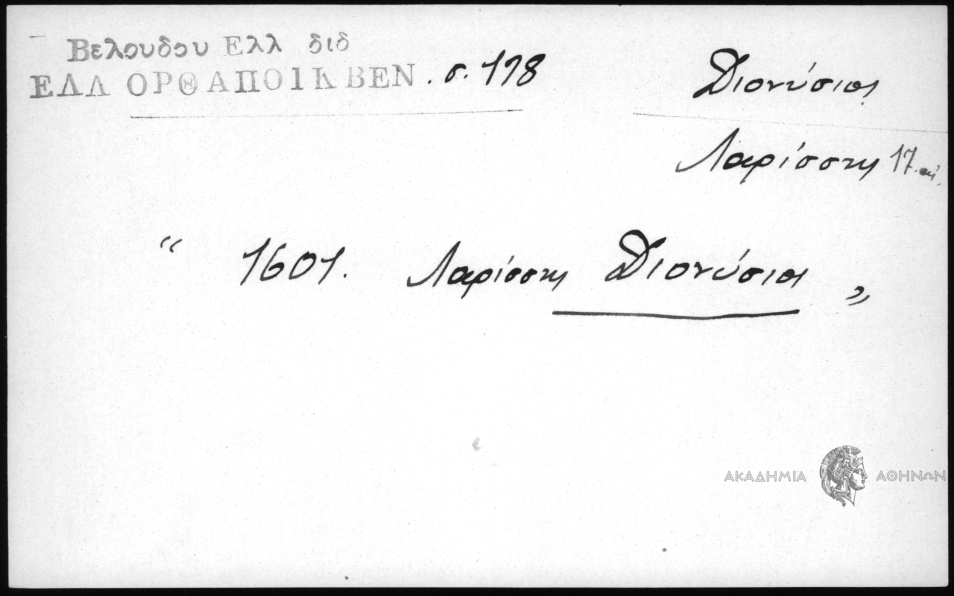 Βελουδου Ελλ διδ
ΕΛΛ ΟΡΘ ΑΠΟΙΚ ΒΕΝ. σ. 178
Διονύσιος
Λαρίσσης 17. αἰ.
“ 1601. Λαρίσσης Διονύσιος „
ΑΚΑΔΗΜΙΑ ΑΘΗΝΩΝ